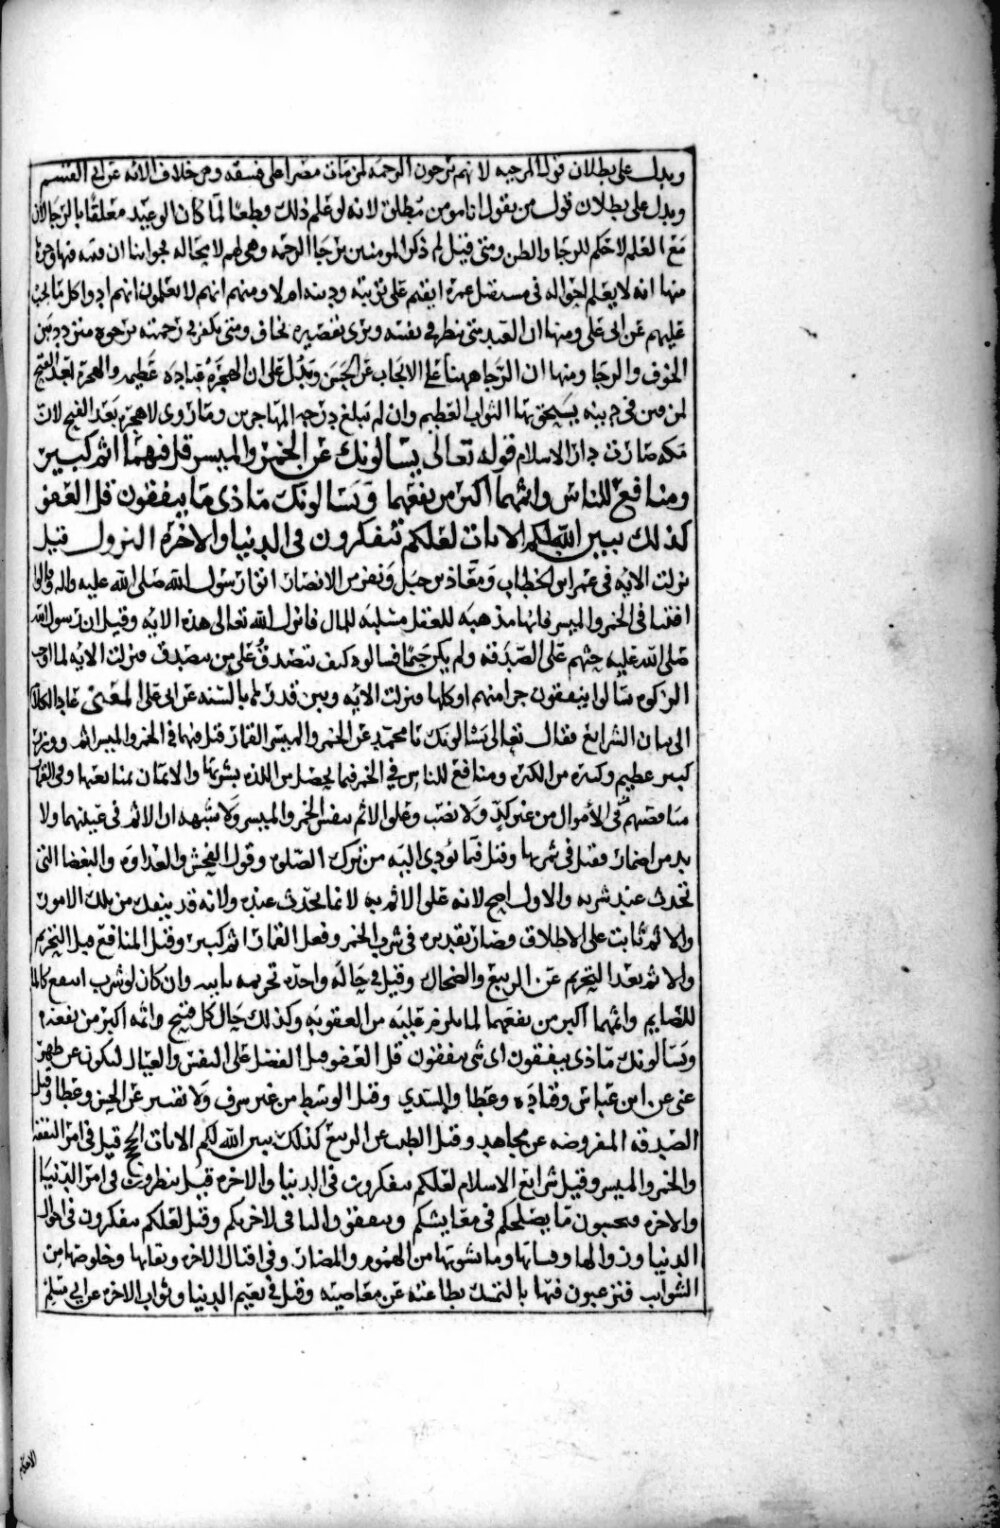 ويدل على بطلان قول المرجيه لانهم يرجون الرحمه لمن مات مصرا على فسقه وهو خلاف الايه عن ابي القسم
ويدل على بطلان قول من يقول انا مومن مطلق لانه لو علم ذلك وطعا لما كان الوعيد معلقا بالرجا لان
مع العلم لا حكم للرجا والظن ومتى قيل لم ذكر المومنين برجا الرحمه وهي لهم لا محاله فجوابنا ان فيه وجوها
منها انه لا يعلم احواله في مستقبل عمره ايقيم على توبته ودينه ام لا ومنهم انهم لا يعلمون انهم ادوا كل ما يجب
عليهم عن ابي علي ومنها ان العبد متى نظر في نفسه ويرى تقصيره يخاف ومتى يكفر في رحمته يرجوه متردد بين
الخوف والرجا ومنها ان الرجا ههنا على الايجاب عن الحسن وتدل على ان الهجره عباده عظيمه والهجره بعد الفتح
لمن فر في دينه يستحق بها الثواب العظيم وان لم تبلغ درجه المهاجرين وما روى لا هجره بعد الفتح لان
مكه صارت دار الاسلام قوله تعالى يسالونك عن الخمر والميسر قل فيهما اثم كبير
ومنافع للناس واثمهما اكبر من نفعهما ويسالونك ماذى ما ينفقون قل العفو
كذلك يبين الله لكم الايات لعلكم تتفكرون في الدنيا والاخره النزول قيل
نزلت الايه في عمر ابن الخطاب ومعاذ بن جبل ونفر من الانصار اتوا رسول الله صلى الله عليه واله وقالوا
افتنا في الخمر والميسر فانها مذهبه للعقل مسلبه للمال فانزل الله تعالى هذه الايه وقيل ان رسول الله
صلى الله عليه حثهم على الصدقه ولم يكن حتما فسالوه كيف نتصدق على من نتصدق فنزلت الايه لما اوجب
الزكوه سالوا ينفقون جرا منهم او كلها فنزلت الايه وبين قدر ما بالسنه عن ابي علي المعنى عاد الكلام
الى بيان الشرايع فقال تعالى يسالونك يا محمد عن الخمر والميسر القمار قل فيها في الخمر والميسر اثم ووزر
كبير عظيم وكثره من الكثره ومنافع للناس في الخمر فيما يحصل من اللذه بشربها والاثمان بمنافعها وفي القمار
منافعهم في الاموال من غير كد ولا نصب وعلق الاثم بنفس الخمر والميسر ولا شبهه ان الاثم في عينهما ولا
بد من اضمار فقيل في شربها وقيل فيما يودي اليه من ترك الصلوه وقول الفحش والعداوه والبغضا التي
تحدث عند شربه والاول اصح لانه علق الاثم به لا بما يحدث عنده ولانه قد ينفك من تلك الامور
والاثم ثابت على الاطلاق وصار تقديره في شرب الخمر وفعل القمار اثم كبير وقيل المنافع قبل التحريم
والاثم بعد التحريم عن الربيع والضحاك وقيل في حاله واحده تحريمه ثابت وان كان لو شرب انتفع كالماء
للصايم واثمهما اكبر من نفعهما لما يلزم عليه من العقوبه وكذلك حال كل قبيح واثمه اكبر من نفعه
ويسالونك ماذى ينفقون اي شي ينفقون قل العفو قيل الفضل على النفس والعيال ليكون عن ظهر
غنى عن ابن عباس وقتاده وعطا والسدي وقيل الوسط من غير سرف ولا تقتير عن الحسن وعطا وقيل
الصدقه المفروضه عن مجاهد وقيل الطيب عن الربيع كذلك يبين الله لكم الايات الحجج قيل في امر النفقه
والخمر والميسر وقيل شرايع الاسلام لعلكم تتفكرون في الدنيا والاخره قيل ينظرون في امر الدنيا
والاخره فتحبسون ما يصلحكم في معايشكم وتنفقوا الباقي لاخرتكم وقيل لعلكم تتفكرون في احوال
الدنيا وزوالها وفنائها وما يشوبها من الهموم والمضار وفي اقبال الاخره وبقايها وخلوصها من
الشوايب فترغبون فيها بالتمسك بطاعته عن معاصيه وقيل في نعيم الدنيا وثواب الاخره عن ابي مسلم